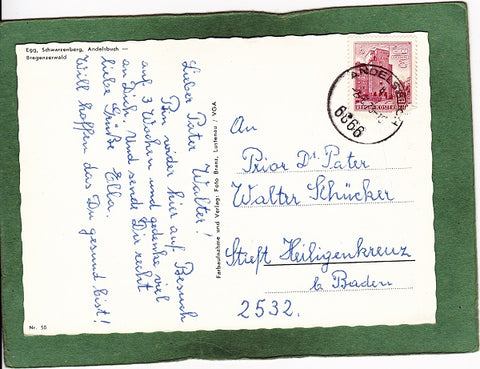 Egg, Schwarzenberg, Andelsbuch —
Bregenzerwald
Lieber Pater Walter!
Bin wieder hier auf Besuch
auf 3 Wochen und gedenke viel
an Dich. Und sende Dir recht
liebe Grüße Ella.
Will hoffen das Du gesund bist!
Nr. 50
Farbaufnahme und Verlag: Foto Branz, Lustenau / VGA
ANDELSBUCH
6866
An
Prior Dr. Pater
Walter Schücker
Stift Heiligenkreuz
b. Baden
2532.